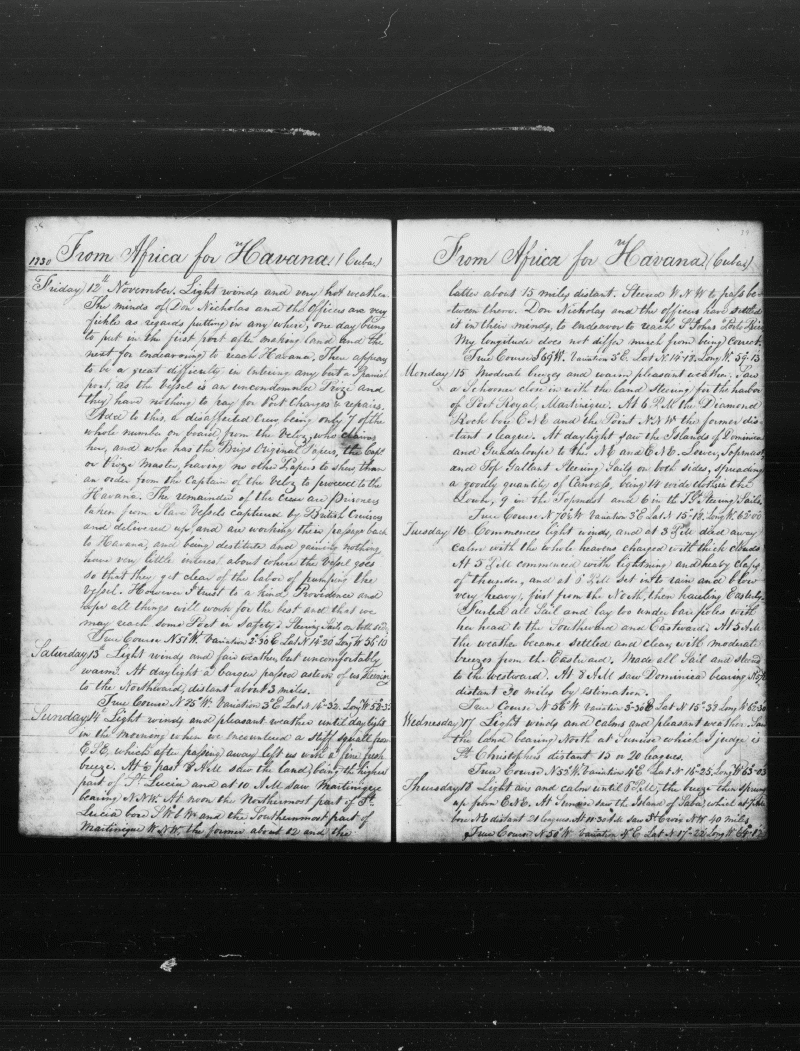 1830 From Africa for Havana (Cuba)
Friday 12th November. Light winds and very hot weather.
The minds of Don Nicholas and the Officers are very
fickle as regards putting in any where, one day being
to put in the first port after making land and the
next for endeavouring to reach Havana; There appears
to be a great difficulty in entering any but a Spanish
port, as the Vessel is an uncondemned Prize and
they have nothing to pay for Port Charges & repairs.
Add to this, a disaffected Crew, being only 7 of the
whole number on board, from the Veloz, who claims
her, and who has the Brigs Original Papers, the Capt
or Prize Master, having no other Papers to shew, than
an order from the Captain of the Veloz to proceed to the
Havana. The remainder of the Crew are Prisoners
taken from Slave Vessels captured by British Cruisers
and delivered up, and are working their passage back
to Havana, and being destitute and gaining nothing
have very little interest about where the Vessel goes
so that they get clear of the labor of pumping the
Vessel. However I trust to a kind Providence and
hope all things will work for the best and that we
may reach some Port in Safety. Steering Sails on both sides.
True Course N 51° W. Variation 3°30 E Lat N 14°20 Long W 56°10
Saturday 13th Light winds and fair weather but uncomfortably
warm. At daylight a barque passed astern of us steering
to the Northward, distant about 3 miles.
True Course N 75° W. Variation 3° E Lat N 14°33 Long W 58°32
Sunday 14th Light winds and pleasant weather until daylight
in the morning when we encountered a stiff squall from
E S E, which after passing away left us with a fine fresh
breeze. At ½ past 8 A M saw the land, being the highest
part of St. Lucia and at 10 A M saw Martinique
bearing N N W. At noon the Northernmost part of St.
Lucia bore S W b W and the Southernmost part of
Martinique W N W, the former about 12 and the
From Africa for Havana (Cuba)
latter about 15 miles distant. Steered W N W to pass be-
tween them. Don Nicholas and the officers have settled
it in their minds, to endeavor to reach St Johns Porto Rico
My longitude does not differ much from being correct.
True Course S 69° W. Variation 3° E. Lat N 14°12 Long W. 59°13
Monday 15 Moderate breezes and warm pleasant weather. Saw
a Schooner close in with the land steering for the harbor
of Port Royal, Martinique. At 6 P M the Diamond
Rock bore E N E and the Point N N W the former dis-
tant 1 league. At daylight saw the Islands of Dominica
and Guadaloupe to the N E and E N E. Lower, Topmast
and Top Gallant Steering Sails on both sides, spreading
a goodly quantity of Canvass, being 14 wide cloths in the
Lower, 9 in the Topmast and 6 in the T. Gt Steering Sails.
True Course N 70° W Variation 3° E Lat N 15°12 Long W. 62°00
Tuesday 16 Commences light winds, and at 3 P M died away
calm with the whole heavens charged with thick clouds
At 5 P M commenced with lightning and heavy claps
of thunder, and at 8 P M set in to rain and blow
very heavy, first from the North, then hauling Easterly.
Furled all Sail and lay too under bare poles with
her head to the Southward and Eastward. At 5 A M
the weather became settled and clear, with moderate
breezes from the Eastward. Made all Sail and steered
to the westward. At 8 A M saw Dominica bearing
distant 30 miles by estimation.
True Course N 56° W Variation 3°30 E Lat N 15°33 Long W 62°30
Wednesday 17 Light winds and calms and pleasant weather. Saw
the land bearing North at Sunrise which I judge is
St. Christophers distant 15 or 20 leagues.
True Course N 52° W. Variation 4° E Lat N 16°25, Long W 63°23
Thursday 18 Light airs and calm until 8 P M, the breeze then sprung
up from E N E. At Sunrise saw the Island of Saba, which at
bore N E distant 21 leagues. At 11 30 A M saw St Croix N W 40 miles
True Course N 50° W Variation 4° E Lat N 17°22 Long W 64°12